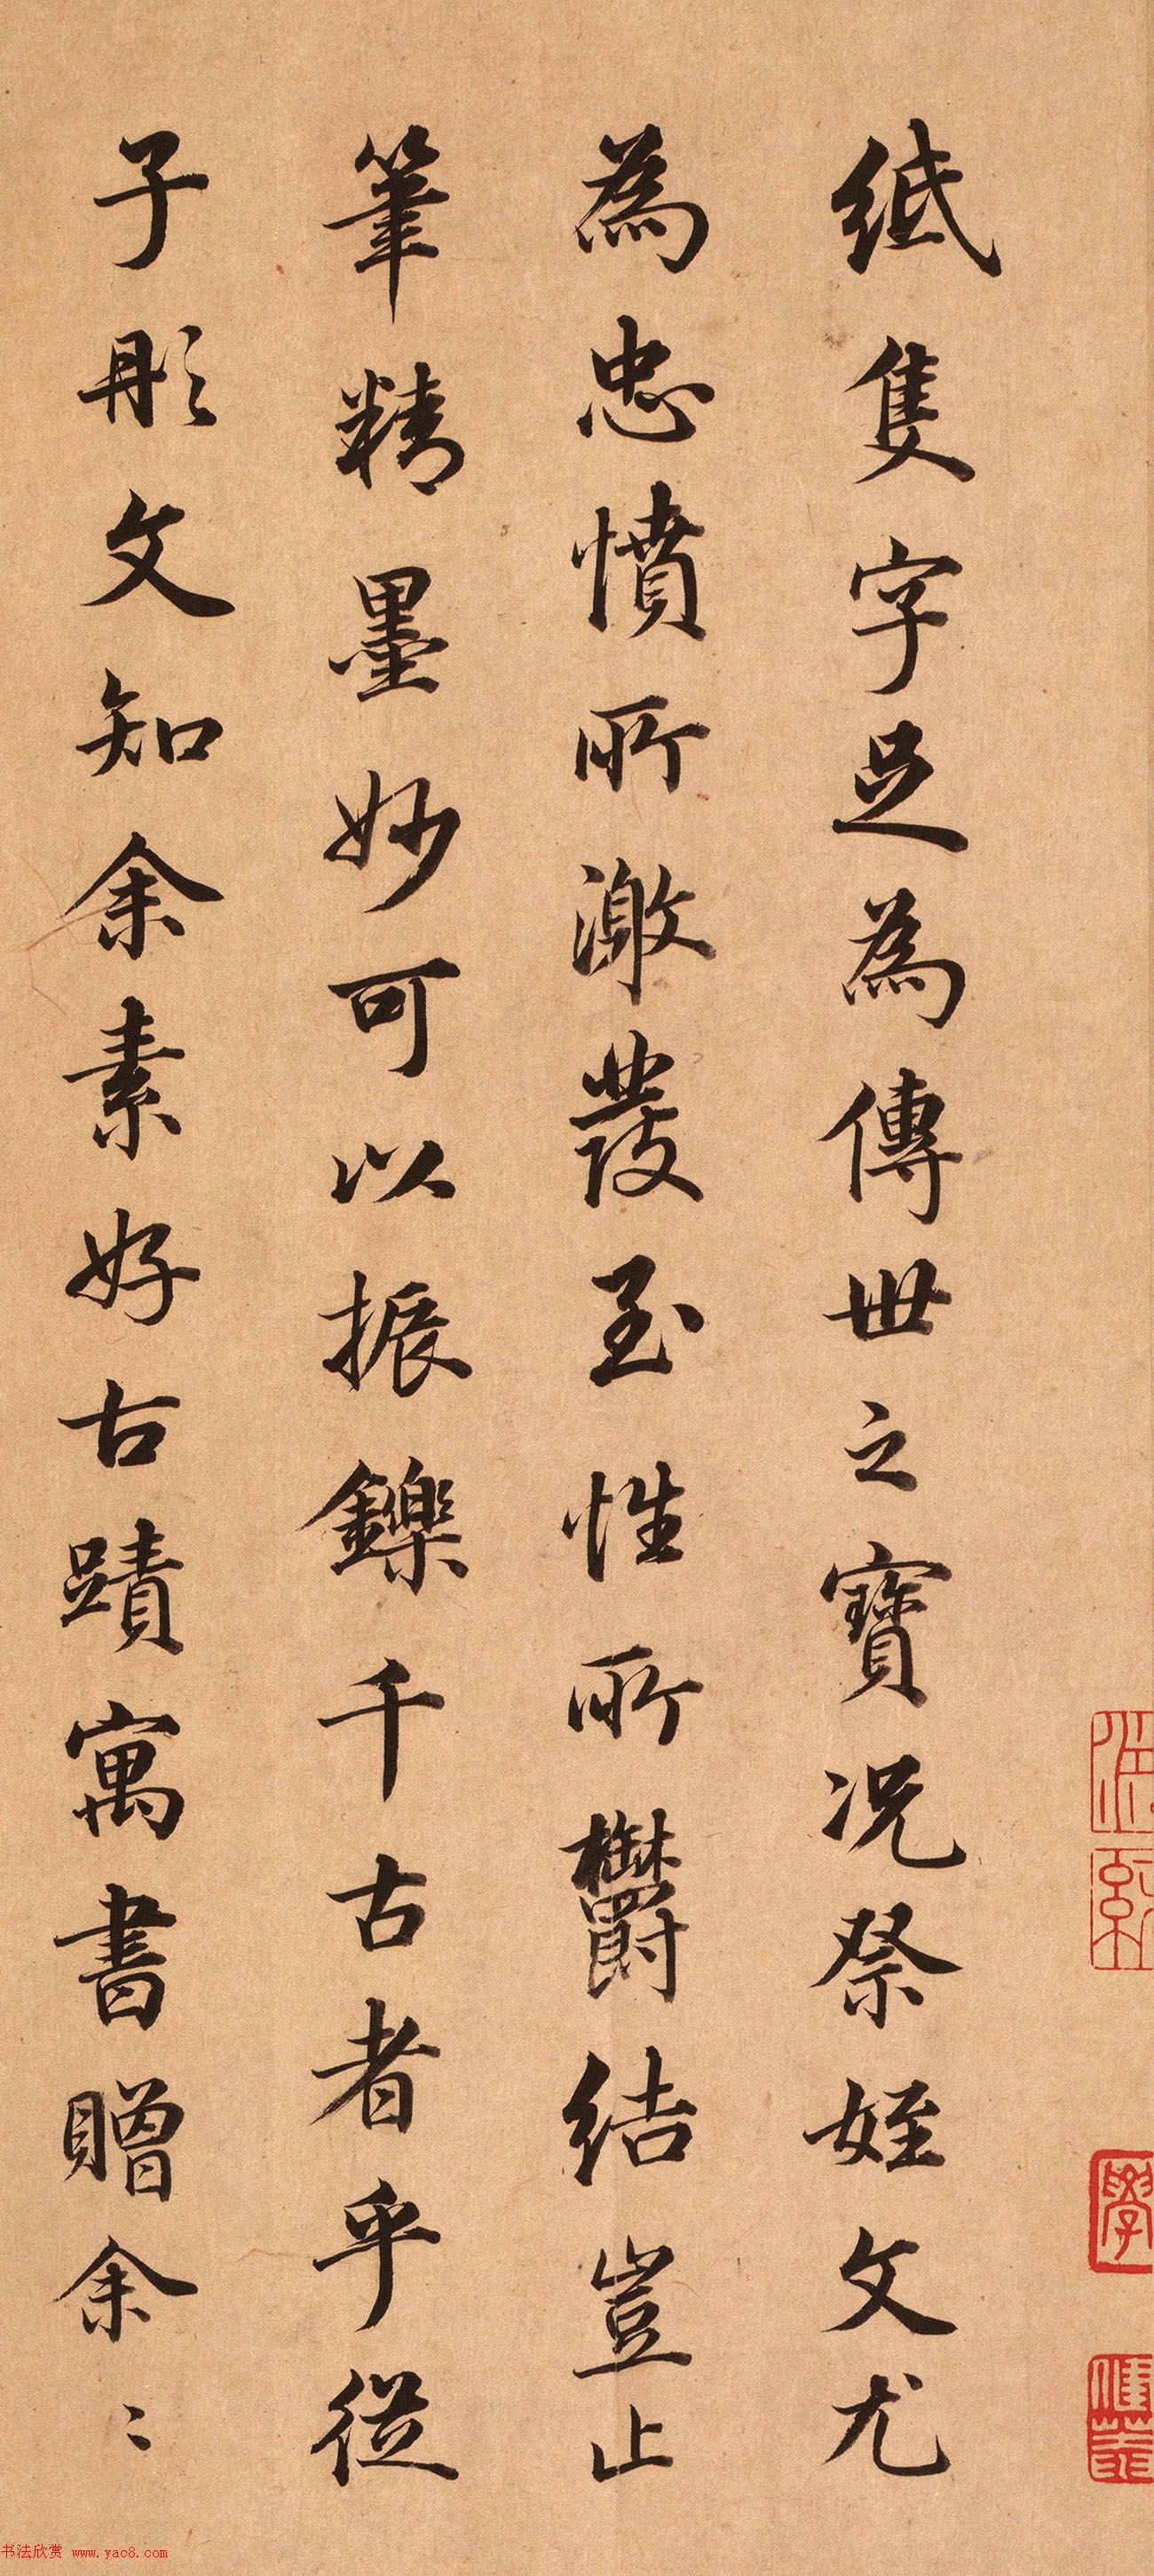 紙隻字足為傳世之寶況祭姪文尤
為忠憤所激發至性所欝結豈止
筆精墨妙可以振鑠千古者乎從
子彤文知余素好古蹟寓書贈余〻
书法欣赏 www.yac8.com